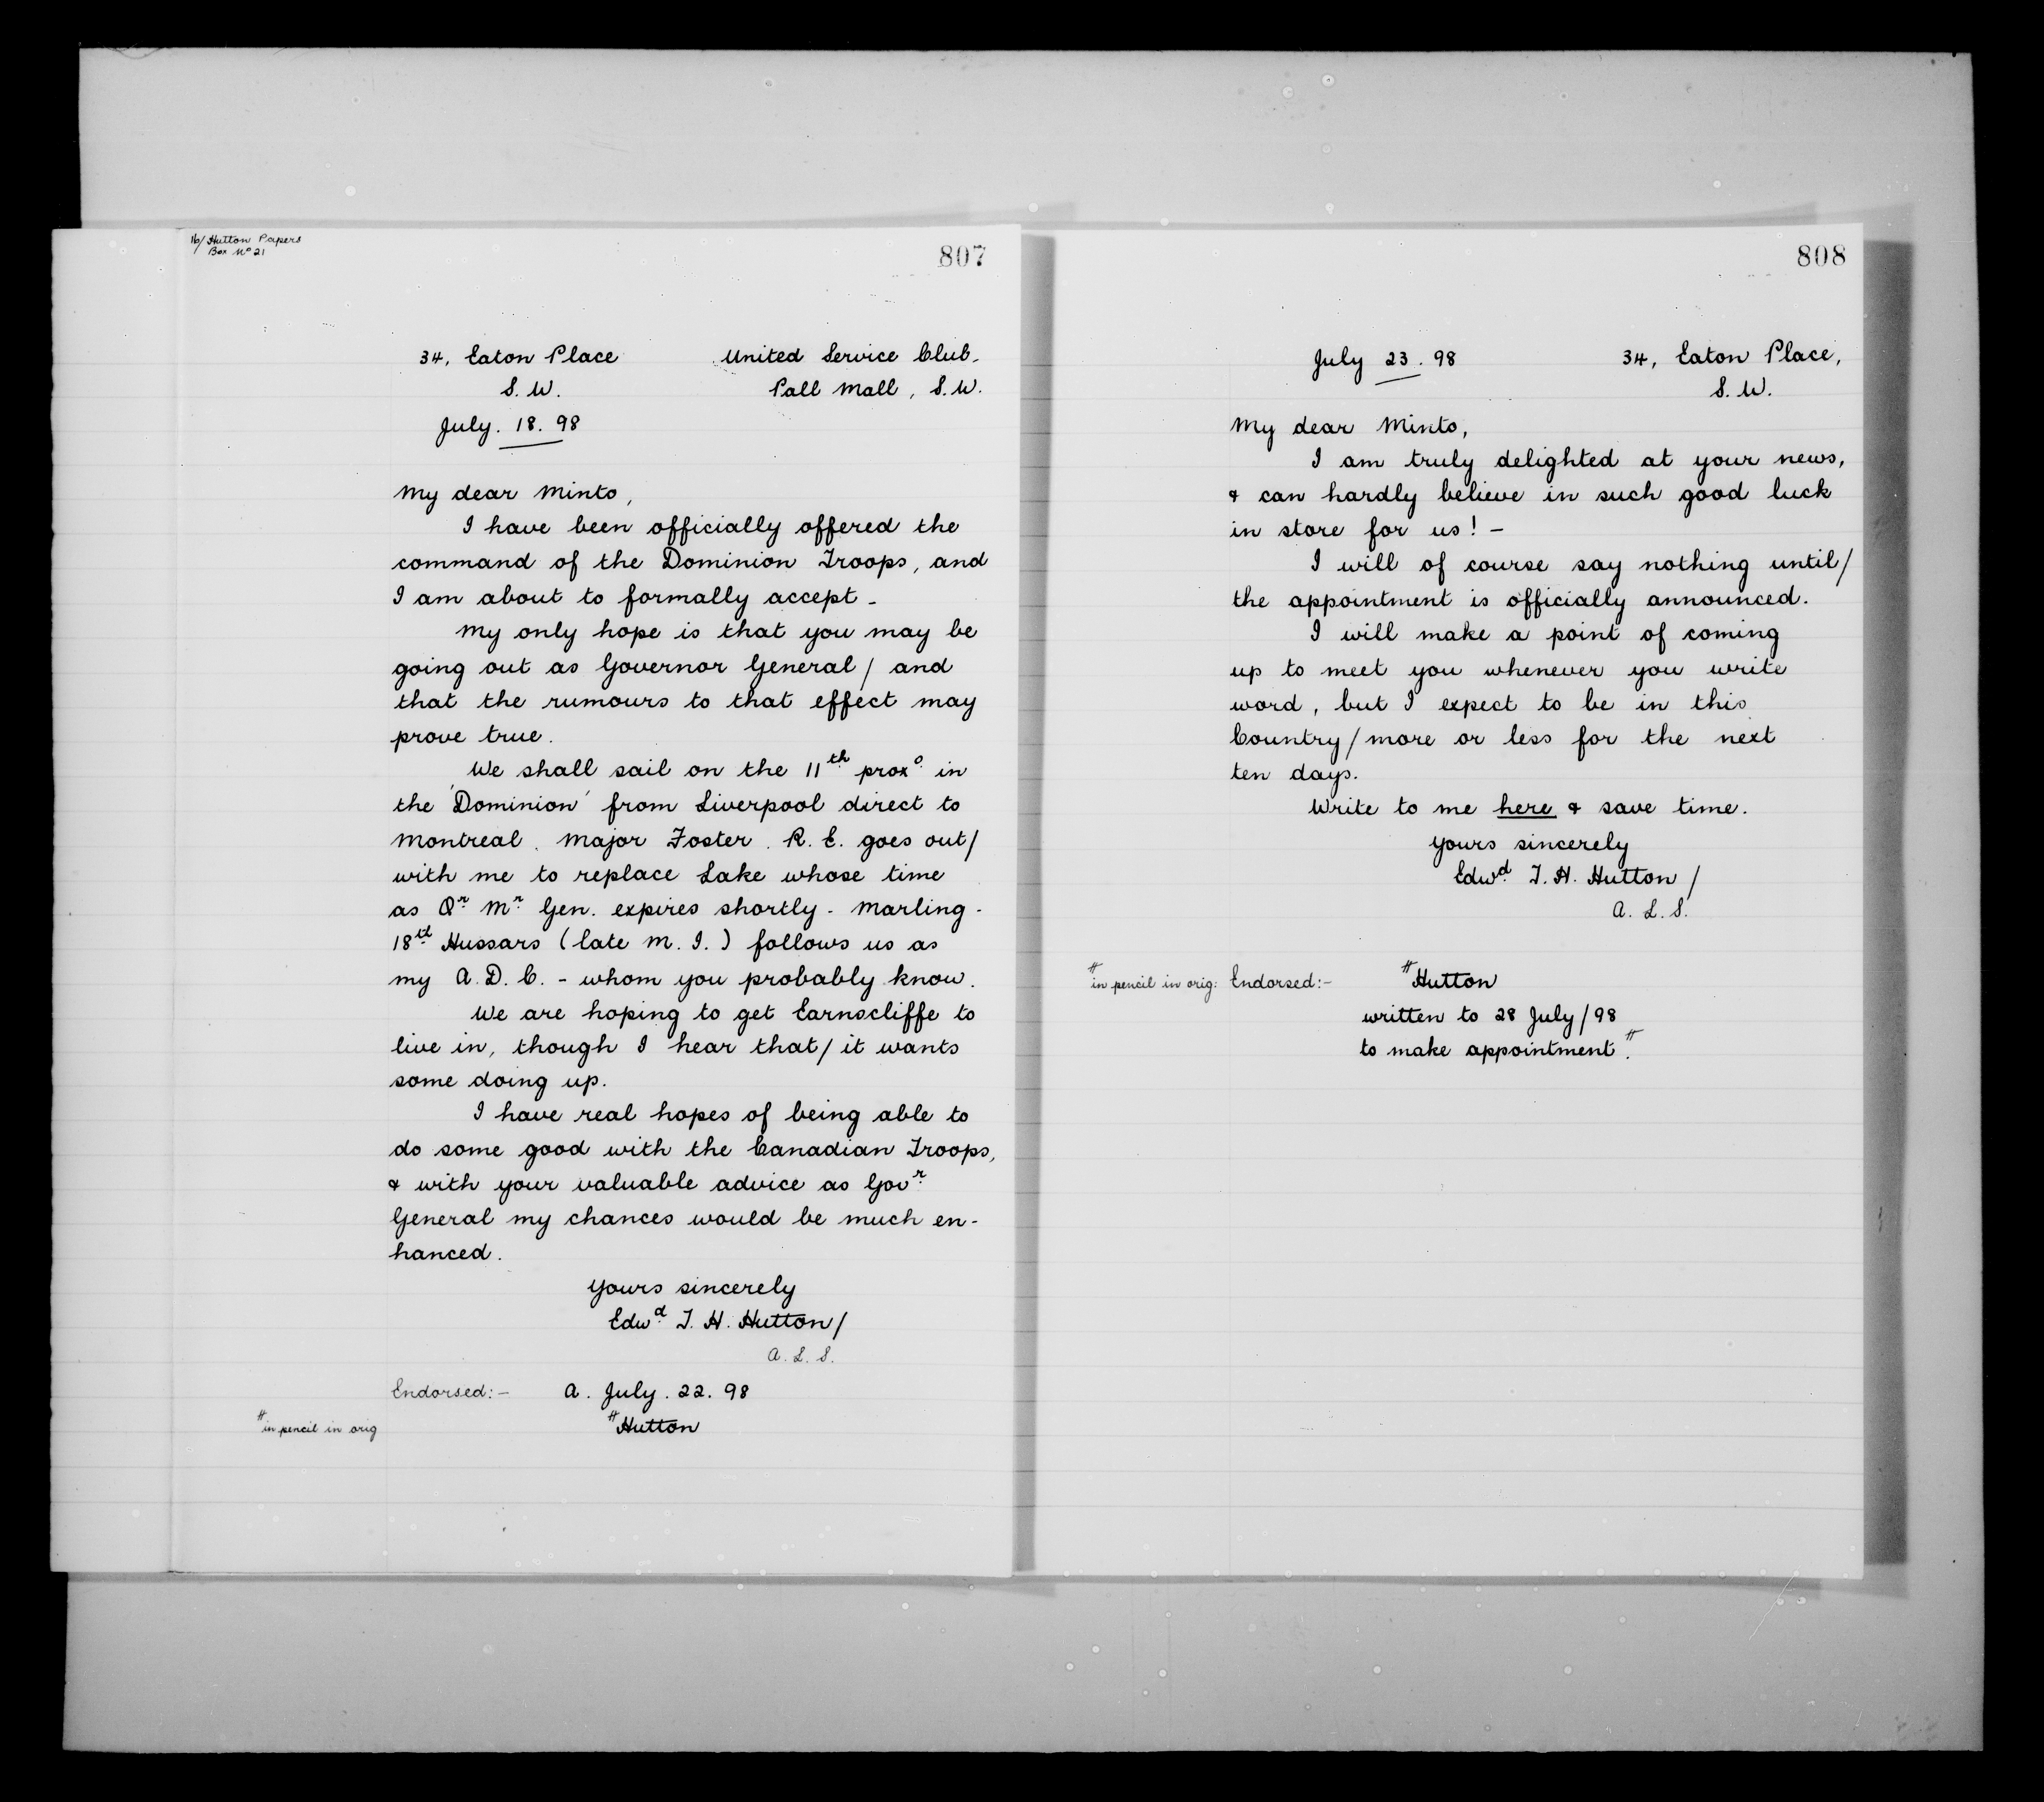 16/ Hutton Papers
Box No 21
807
34, Eaton Place
S. W.
July. 18. 98
United Service Club.
Pall Mall, S. W.
My dear Minto,
I have been officially offered the
command of the Dominion Troops, and
I am about to formally accept -
My only hope is that you may be
going out as Governor General / and
that the rumours to that effect may
prove true.
We shall sail on the 11th proxo in
the 'Dominion' from Liverpool direct to
Montreal. Major Foster. R. E. goes out /
with me to replace Lake whose time
as Qr Mr Gen. expires shortly - Marling -
18th Hussars (late M. I.) follows us as
my A. D. C. - whom you probably know.
We are hoping to get Earnscliffe to
live in, though I hear that / it wants
some doing up.
I have real hopes of being able to
do some good with the Canadian Troops,
& with your valuable advice as Govr
General my chances would be much en-
hanced.
Yours sincerely
Edwd T. H. Hutton /
A. L. S.
Endorsed:- A. July. 22. 98
# in pencil in orig # Hutton
808
July 23. 98
34, Eaton Place,
S. W.
My dear Minto,
I am truly delighted at your news,
& can hardly believe in such good luck
in store for us! -
I will of course say nothing until /
the appointment is officially announced.
I will make a point of coming
up to meet you whenever you write
word, but I expect to be in this
Country / more or less for the next
ten days.
Write to me here & save time.
Yours sincerely
Edwd T. H. Hutton /
A. L. S.
# in pencil in orig: Endorsed:- # Hutton
written to 28 July / 98
to make appointment. #